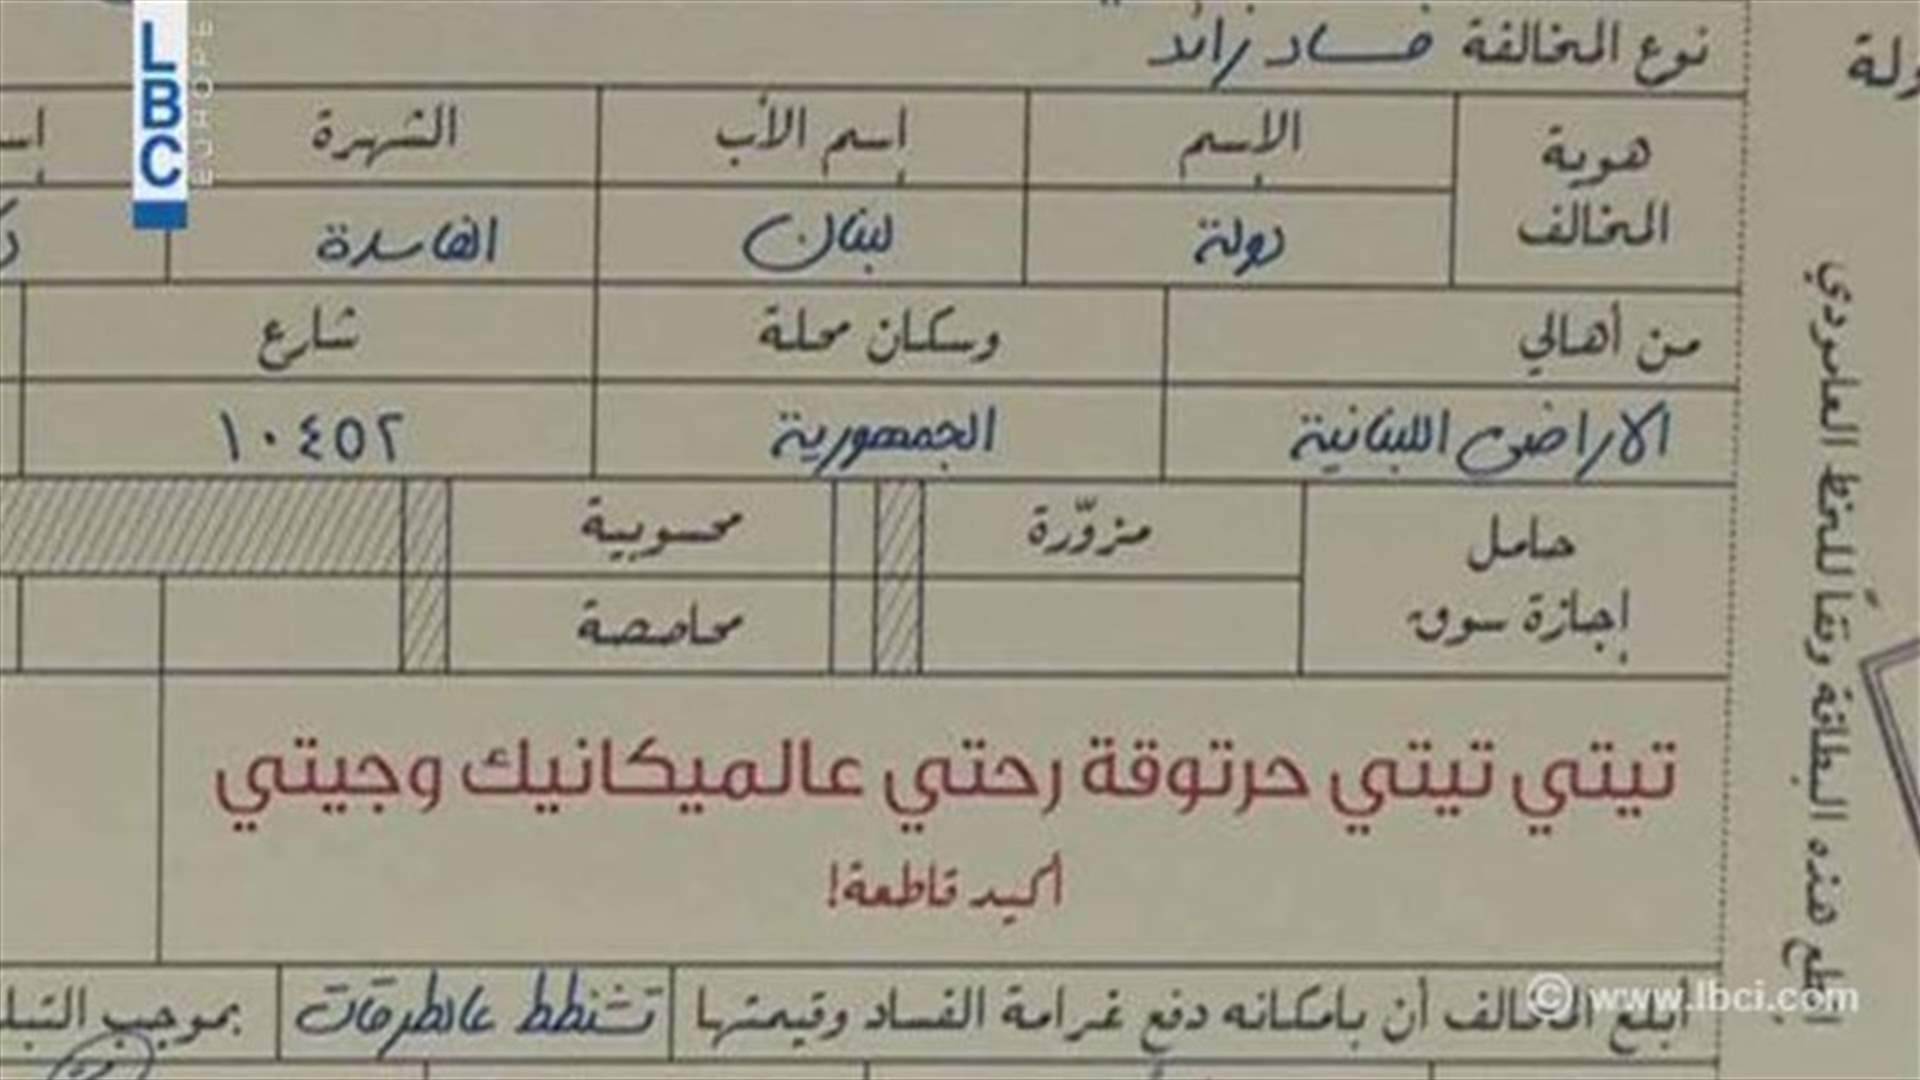 نوع المخالفة فساد زائد
ولة
هوية المخالف
الإسم
إسم الأب
الشهرة
دولة
لبنان
الفاسدة
من أهالي
وسكان محلة
شارع
الاراضي اللبنانية
الجمهورية
١٠٤٥٢
حامل
إجازة سوق
مزوّرة
محسوبية
محاصصة
تيتي تيتي حرتوقة رحتي عالميكانيك وجيتي
أكيد قاطعة!
أبلغ المخالف أن بامكانه دفع غرامة الفساد وقيمتها
تشنطط عالطرقات
بموجب التبل
هذه البطاقة وفقاً للخط العامودي
LBC
EUROPE
© www.lbci.com